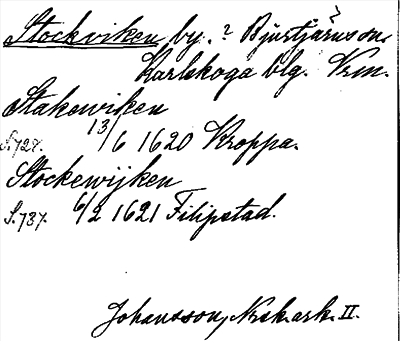 Stockviken by. ? Bjurtjärns sn.
Karlskoga blg. Vrm.
Stakewiken
S. 727. 13/6 1620 Kroppa.
Stockewijken
S. 737. 6/2 1621 Filipstad.
Johansson, Nsk. ark. II.